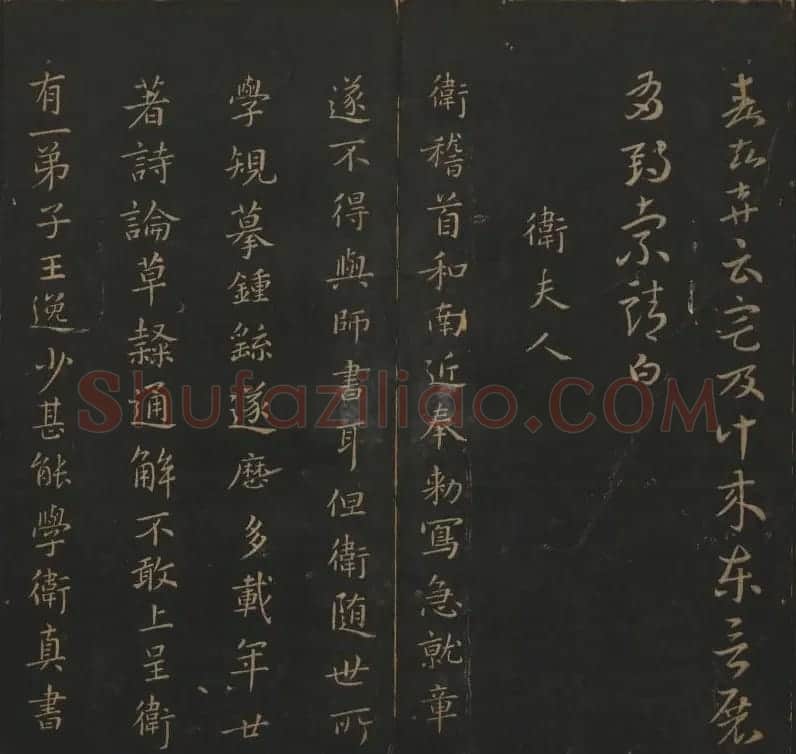 云宅及計來東言展
索靖白
衛夫人
衛稽首和南近奉勅寫急就章
遂不得與師書耳但衛随世所
學規摹鍾繇遂歷多載年廿
著詩論草隸通解不敢上呈衛
有一弟子王逸少甚能學衛真書
Shufaziliao.COM